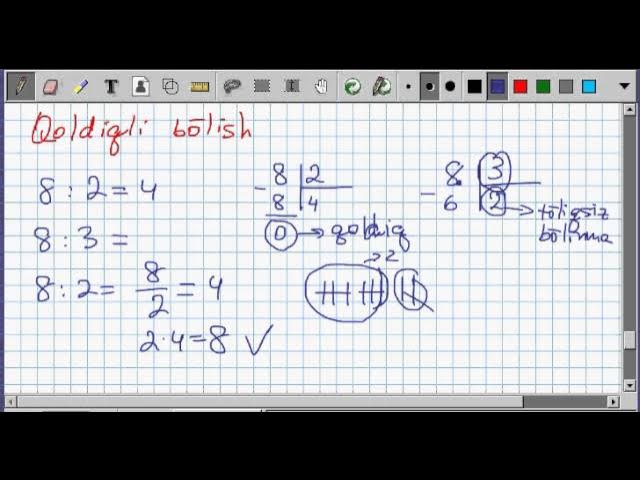 Qoldiqli bōlish
8 : 2 = 4
8 : 3 =
8 : 2 = 8/2 = 4
2 · 4 = 8 ✓
- 8 | 2
8 | 4
0 → qoldiq
→ 2
- 8 | 3
6 | 2 → tōliqsiz
bōlinma
T